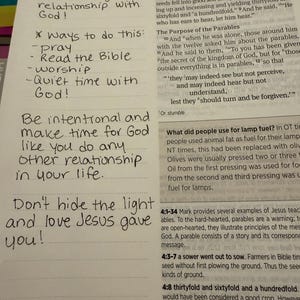 relationship with
God!
* Ways to do this:
- pray
- Read the Bible
- worship
- Quiet time with
God!
Be intentional and
make time for God
like you do any
other relationship
in your life.
Don't hide the light
and love Jesus gave
you!
seeds fell into good
ing up and increasing and yielding thirtyfold
sixtyfold and a hundredfold." 9 And he said, "He
who has ears to hear, let him hear."
The Purpose of the Parables
10 And when he was alone, those around him
with the twelve asked him about the parables.
11 And he said to them, "To you has been given
the secret of the kingdom of God, but for those
outside everything is in parables, 12 so that
"'they may indeed see but not perceive,
and may indeed hear but not
understand,
lest they should turn and be forgiven.'"
Or stumble
What did people use for lamp fuel? In OT
people used animal fat as fuel for their lamps.
NT times, this had been replaced with olive
Olives were usually pressed two or three
Oil from the first pressing was used for food
from the second and third pressing was used
fuel for lamps.
4:1-34 Mark provides several examples of Jesus
bles. To the hard-hearted, parables are a warning;
are open-hearted, they illustrate principles of the
God. A parable consists of a story and its corresponding
message.
4:3-7 a sower went out to sow. Farmers in Bible
seed without first plowing the ground. Thus the
kinds of ground.
4:8 thirtyfold and sixtyfold and a hundredfold.
would have been considered a good crop.